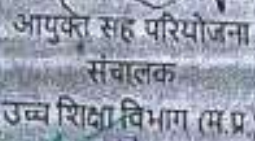 आयुक्त सह परियोजना
संचालक
उच्च शिक्षा विभाग (म.प्र.